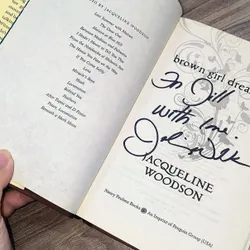 BY JACQUELINE WOODSON
Last Summer with Maison
The Dear One
Maizon at Blue Hill
Between Madison and Palmetto
I Hadn't Meant to Tell You This
From the Notebooks of Melanin Sun
The House You Pass on the Way
If You Come Softly
Lena
Miracle's Boys
Hush
Locomotion
Behind You
Feathers
After Tupac and D Foster
Peace, Locomotion
Beneath a Meth Moon
brown girl drea
To Jill
with love
JACQUELINE
WOODSON
Nancy Paulsen Books
An Imprint of Penguin Group (USA)